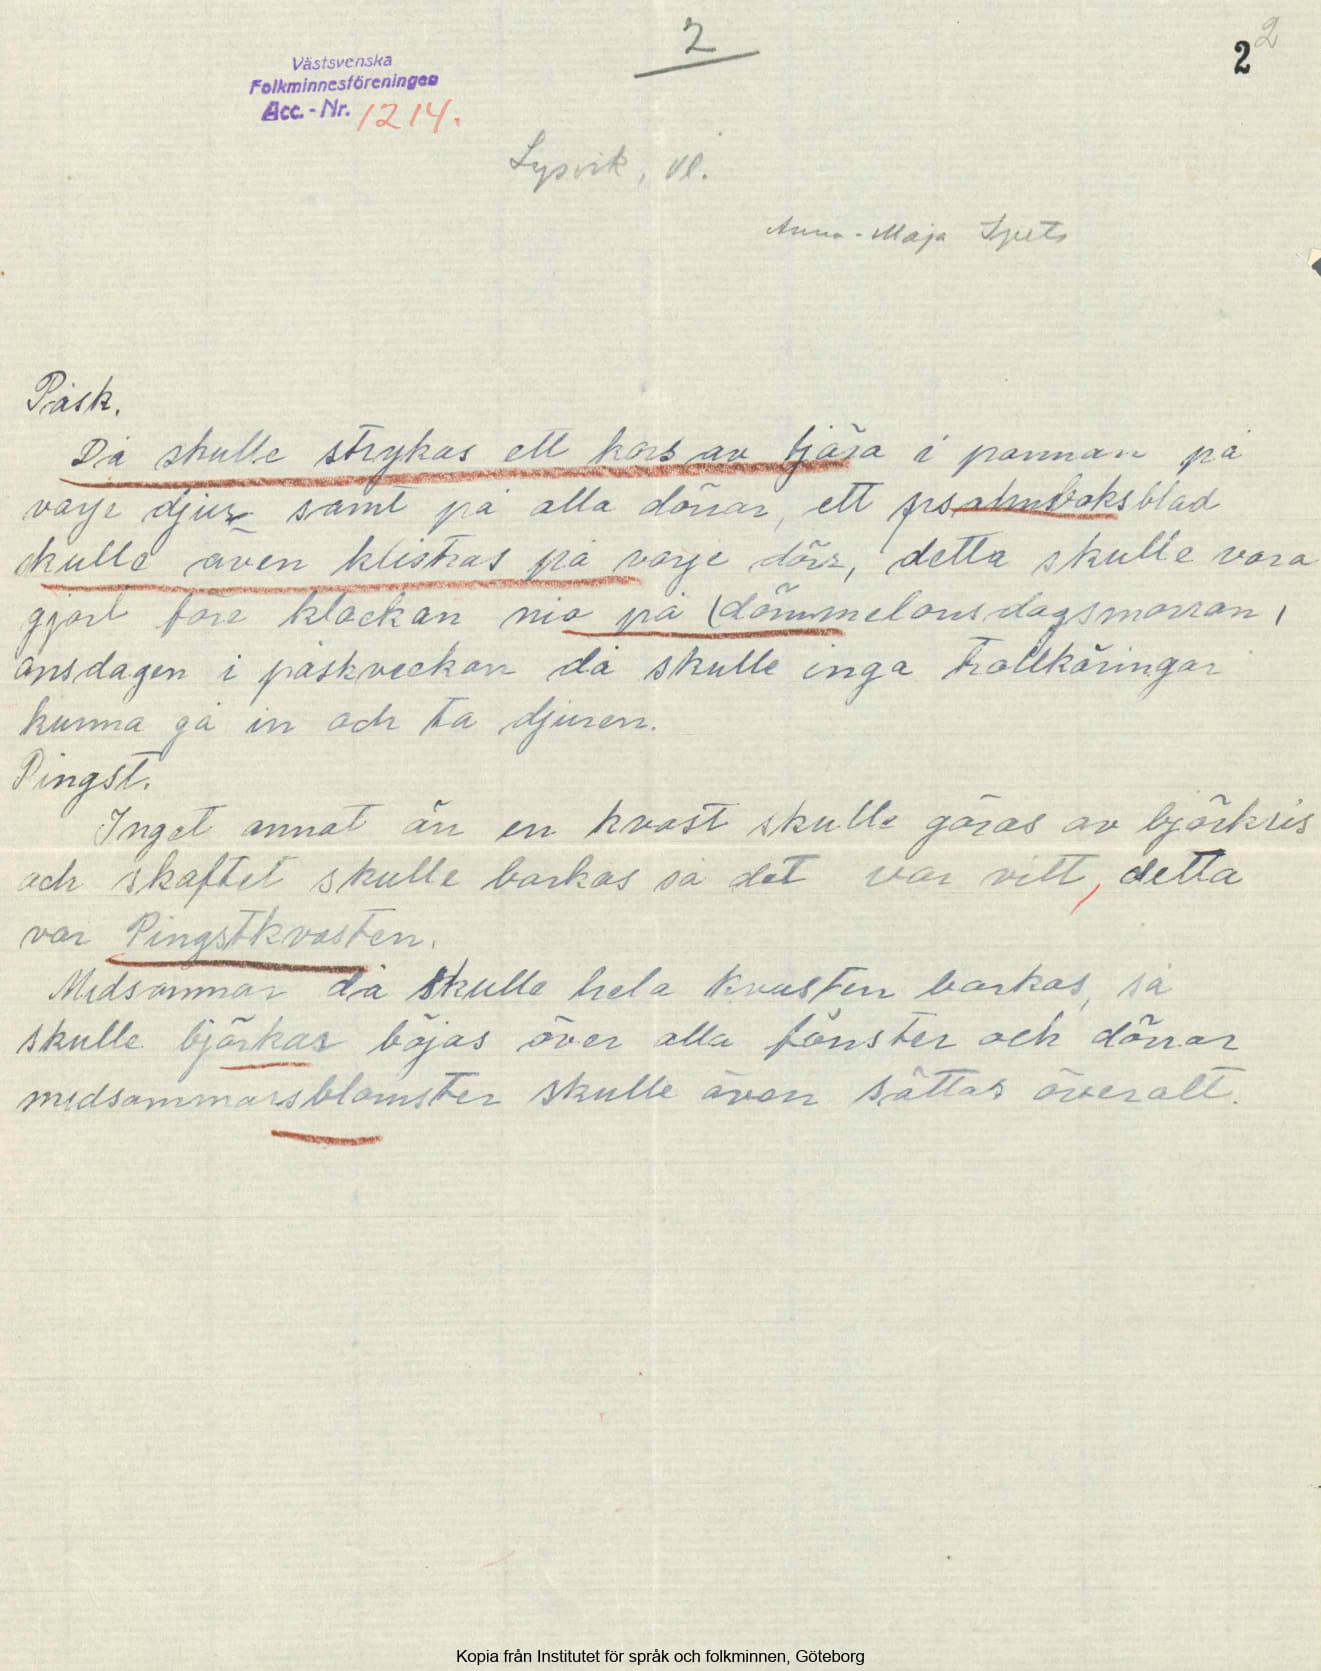 2
2 2
Västsvenska
Folkminnesföreningen
Acc.-Nr. 1214.
Lysvik, Vl.
Anna-Maja Spets
Påsk.
Då skulle strykas ett kors av tjära i pannan på
varje djur samt på alla dörrar, ett psalmboksblad
skulle även klistras på varje dörr, detta skulle vara
gjort före klockan nio på (dömmelonsdagsmorron,
onsdagen i påskveckan då skulle inga trollkäringar
kunna gå in och ta djuren.
Pingst.
Inget annat än en kvast skulle göras av björkris
och skaftet skulle barkas så det var vitt, detta
var Pingstkvasten.
Midsommar då skulle hela kvasten barkas, så
skulle björkar böjas över alla fönster och dörrar
midsommarsblomster skulle även sättas överalt.
Kopia från Institutet för språk och folkminnen, Göteborg